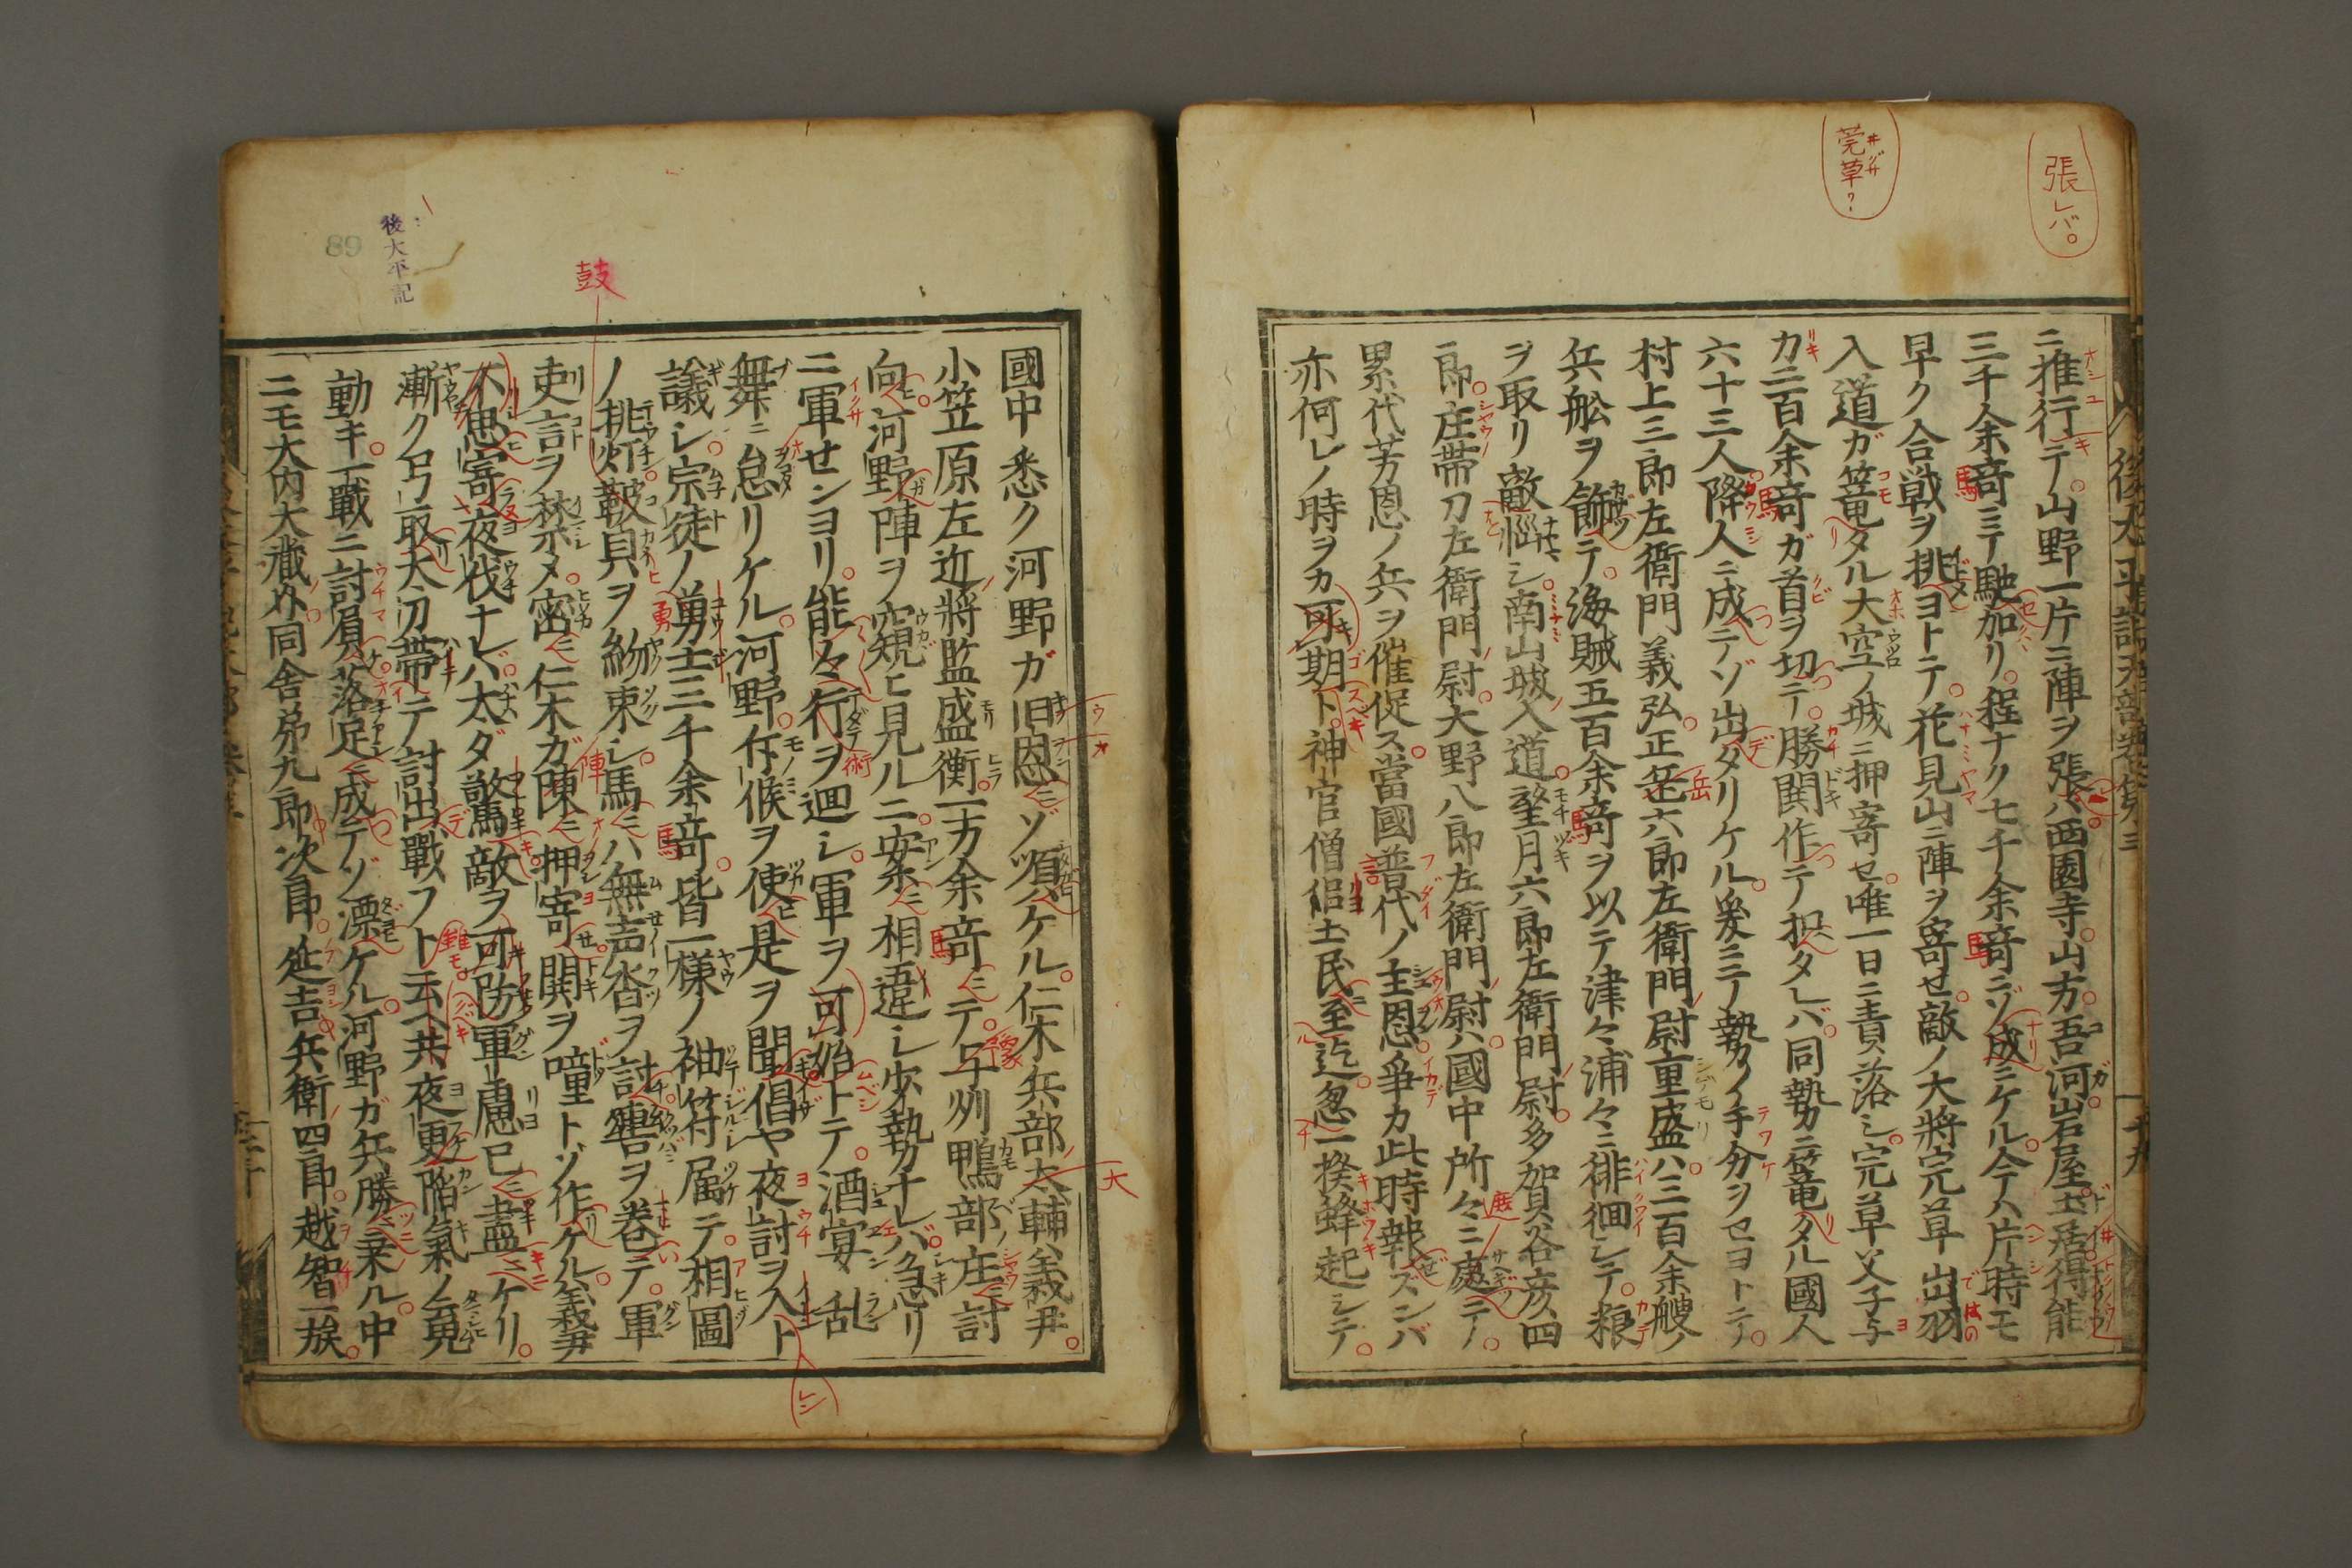 張レバ。
莞草?
ヰグサ
ニ推行テ山野一片ニ陣ヲ張バ西園寺山方吾河岩屋土居得能
三千余竒ニテ馳加リ程ナク七千余竒ニゾ成ニケル今ハ片時モ
早ク合戦ヲ挑ヨトテ花見山ニ陣ヲ寄セ敵ノ大將完草出羽
入道ガ篭タル大空ノ城ニ押寄セ唯一日ニ責落シ完草父子与
力二百余竒ガ首ヲ切テ勝鬨作テ扣タレバ同勢ニ篭タル國人
六十三人降人ニ成テゾ出タリケル爰ニテ勢ノ手分ヲセヨトテ
村上三郎左衛門義弘正岳六郎左衛門尉重盛ハ三百余艘ノ
兵舩ヲ飾テ海賊五百余竒ヲ以テ津々浦々ニ徘徊シテ粮
ヲ取リ敵悩シ南山城入道望月六郎左衛門尉多賀谷彦四
郎庄帯刀左衛門尉大野八郎左衛門尉ハ國中所々ニ處テ
累代芳恩ノ兵ヲ催促ス當國普代ノ主恩爭カ此時報ズンバ
亦何レノ時ヲカ可期ト神官僧侶土民至迄忽一揆蜂起シテ
後太平記
十九
89
後太平記
鼓
國中悉ク河野ガ旧恩ニゾ順ケル仁木兵部太輔義尹
小笠原左近將監盛衡一万余竒ニテ与州鴨部庄討
向河野陣ヲ窺ヒ見ルニ案ニ相違シ少勢ナレバ急リ
ニ軍センヨリ能々行ヲ廻シ軍ヲ可始トテ酒宴乱
舞ニ怠リケル河野斥候ヲ使是ヲ聞倡ヤ夜討ヲ入ト
議シ宗徒ノ勇士三千余竒皆一様ノ袖符属テ相圖
ノ挑灯鞁貝ヲ約束シ馬ニハ無声沓ヲ討轡ヲ巻テ軍
吏言ヲ禁メ密ニ仁木ガ陳ニ押寄鬨ヲ噇トゾ作ケル義尹
不思寄夜伐ナレバ太ダ驚敵ヲ可防軍慮已ニ盡ニケリ
漸ク弓取太刀帯テ討出戰フト云共夜更陥氣ノ二見
動キ一戰ニ討負落足ニ成テゾ漂ケル河野ガ兵勝ニ乗ル中
ニモ大内大蔵外同舎弟九郎次郎延吉兵衛四郎越智一族